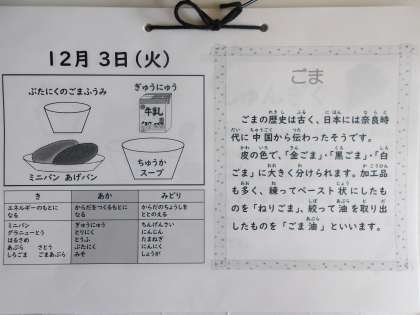 12月 3日(火)
ぶたにくのごまふうみ
ぎゅうにゅう
牛乳
ミニパン あげパン
ちゅうか
スープ
き あか みどり
エネルギーのもとに
なる
からだをつくるもとに
なる
からだのちょうしを
ととのえる
ミニパン
グラニューとう
はるさめ
あぶら さとう
しろごま ごまあぶら
ぎゅうにゅう
とりにく
とうふ
ぶたにく
みそ
ちんげんさい
にんじん
たまねぎ
にんにく
しょうが
ごま
ごまの歴史は古く、日本には奈良時
代に中国から伝わったそうです。
皮の色で、「金ごま」・「黒ごま」・「白
ごま」に大きく分けられます。加工品
も多く、練ってペースト状にしたも
のを「ねりごま」、絞って油を取り出
したものを「ごま油」といいます。